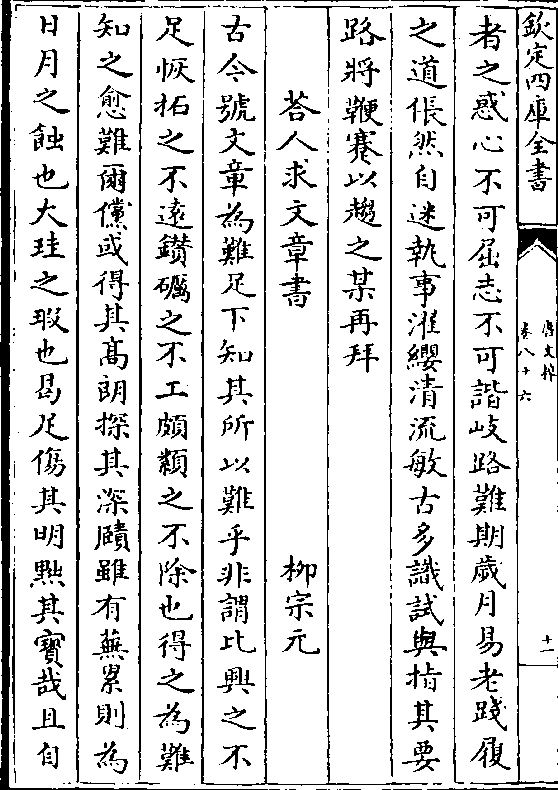 欽定四庫全書
唐文粹
卷八十六
十一
者之惑心不可屈志不可諧岐路難期歲月易老踐履
之道倀然自迷執事濯纓清流敏古多識試與指其要
路將鞭蹇以趨之某再拜
荅人求文章書
柳宗元
古今號文章為難足下知其所以難乎非謂比興之不
足恢拓之不遠鑚礪之不工頗纇之不除也得之為難
知之愈難爾儻或得其髙朗探其深賾雖有蕪累則為
日月之蝕也大珪之瑕也曷足傷其明㸃其寳哉且自